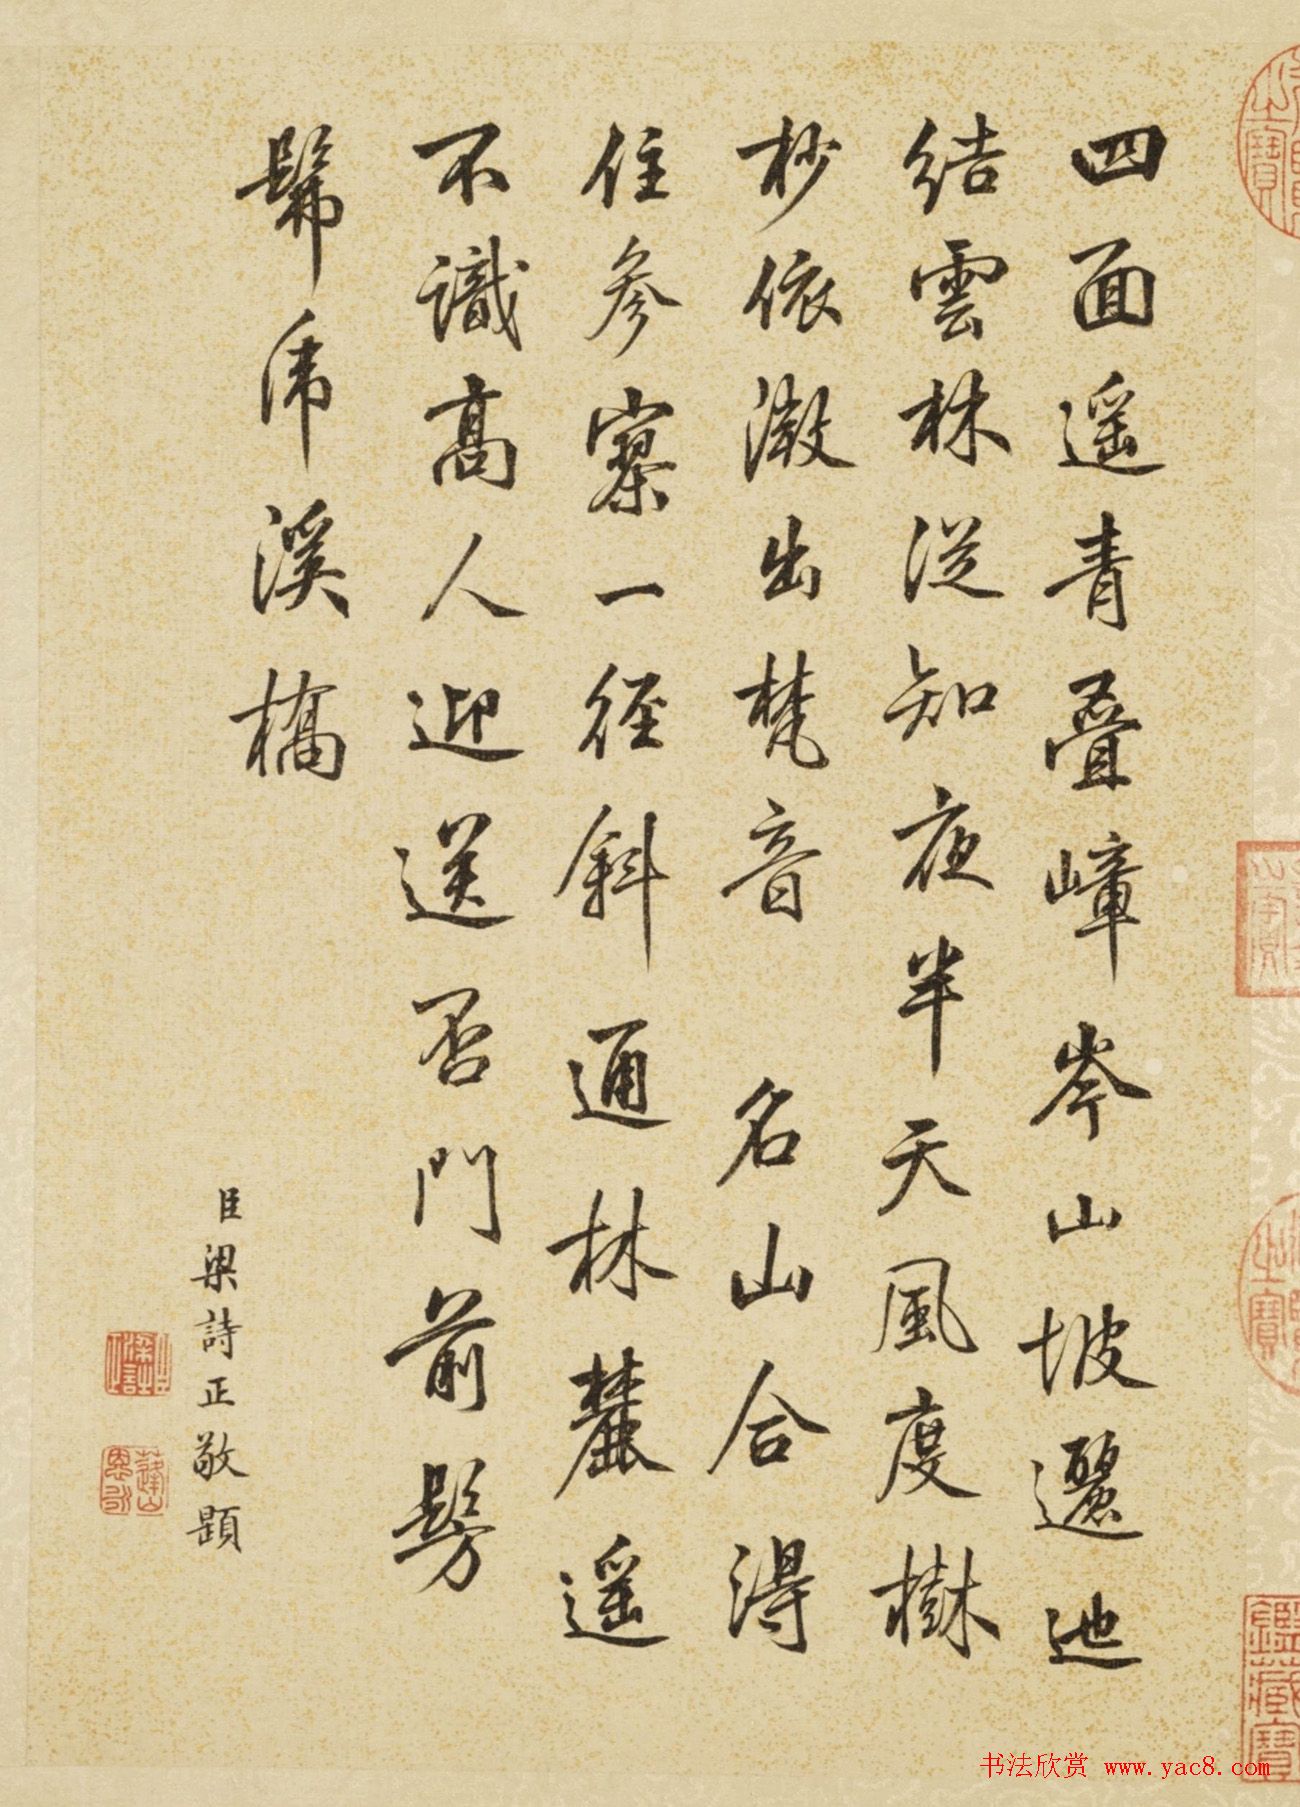 四面遥青叠嶂岑山坡邐迆
結雲林從知夜半天風度樹
杪依微出梵音 名山合得
住參寥一徑斜通林麓遥
不識高人迎送否門前髣
髴虎溪橋
臣梁詩正敬題
书法欣赏 www.yac8.com